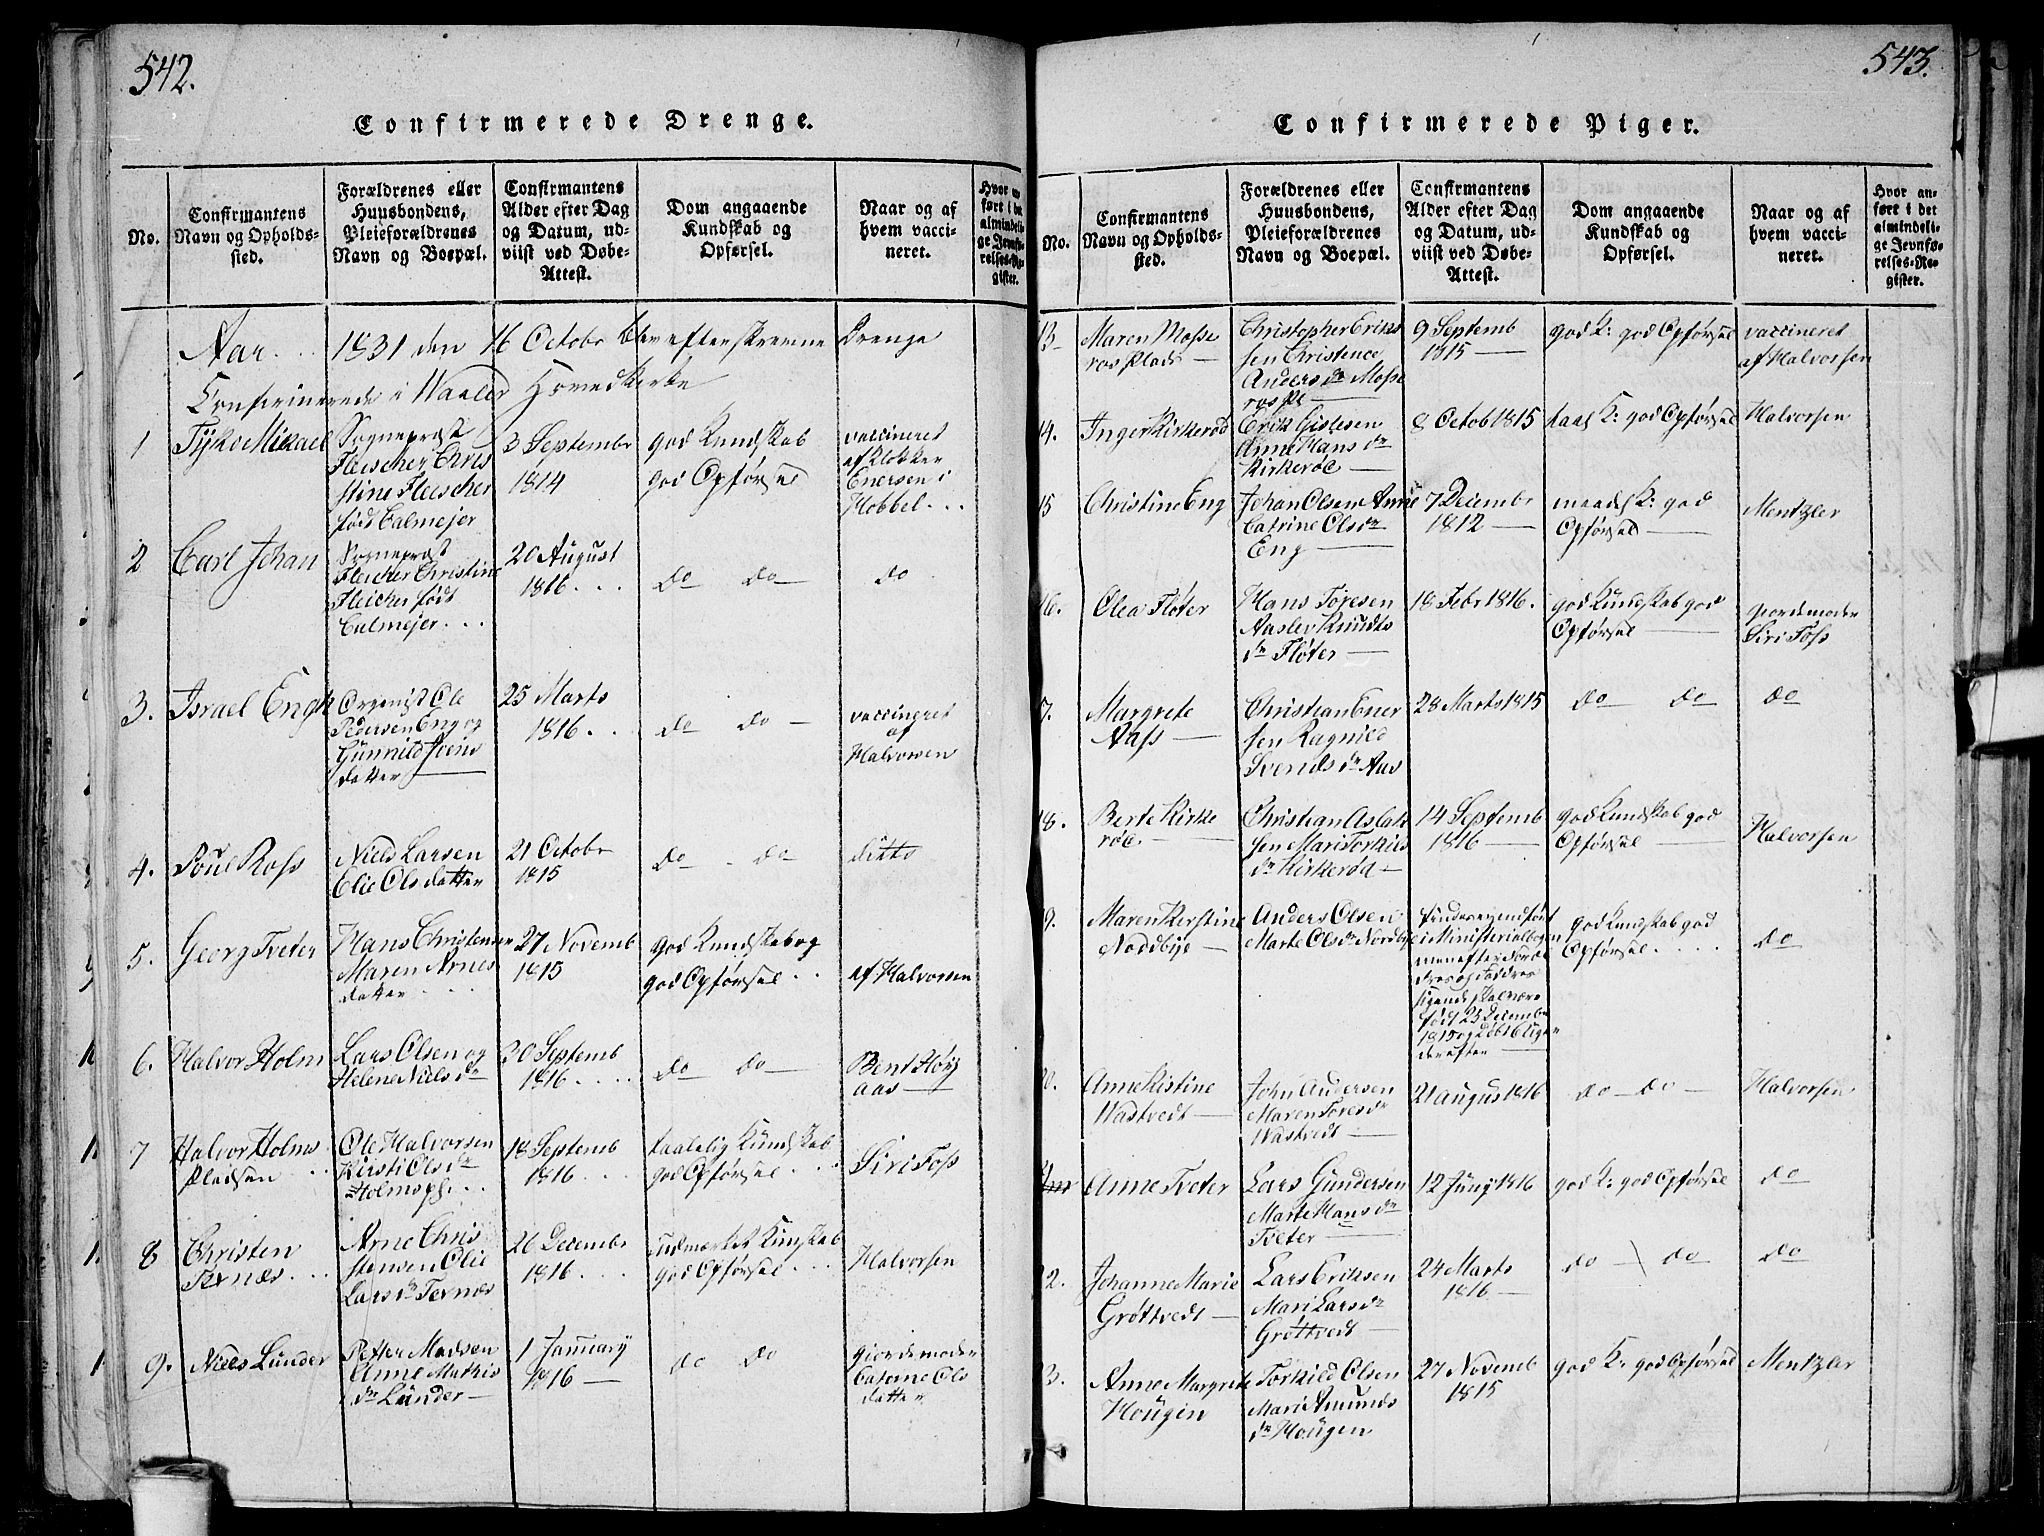 542.
Confirmerede Drenge.
No.
Confirmantens
Navn og Opholds-
sted.
Forældrenes eller
Huusbondens,
Pleieforældrenes
Navn og Boepæl.
Confirmantens
Alder efter Dag
og Datum, ud-
viist ved Døbe-
Attest.
Dom angaaende
Kundskab og
Opførsel.
Naar og af
hvem vacci-
neret.
Aar . . . 1831 den 16 Octobr blev efterskrevne Drenge
Confirmerede i Waaler Hovedkirke
1
Tyko Mikael
Sognepræst
Fleischer Chris
stine Fleischer
født Calmejer
3 Septembr
1814
god Kundskab
god Opførsel
vaccineret
af Klokker
Enersen i
Hobbel . . .
2
Carl Johan
Sognepræst
Fleicher Christine
Fleicher født
Calmejer . . .
20 August
1816 . . .
do do
do
3.
Israel Engh
Organist Ole
Pedersen Eng og
Gunnild Svens
datter
25 Marts
1816 . . .
do do
vaccineret
af
Halvorsen
4.
Poul Ross
Niels Larsen
Elie Olsdatter
21 Octobr
1815
do - do
ditto
5.
Georg Tveter
Hans Christensen
Maren Arnes
datter . . .
27 Novemb
1815
god Kundskab og
god Opførsel . .
af Halvorsen
6.
Halvor Holm
Lars Olsen og
Helene Niels dr
30 Septemb
1816 . . . .
do do
Bent Høy
aas
7
Halvor Holms
Pladsen
Ole Halvorsen
Kirsti Ols dr
Holmspl. . .
18 Septemb
1816 . . .
taalelig Kundskab
god Opførsel . . .
Siri Foss
8
Christen
Ternæs . . .
Arne Chris
stensen Elie
Lars dr Ternæs
26 Decembr
1816 . . .
Udmærket Kunskab
god Opførsel . . .
Halvorsen
9.
Niels Lunder
Petter Madsen
Anne Mathis
dr Lunder
1 January
1816
do do
giordemoder
Catrine Ols
datter
543.
Confirmerede Piger.
No.
Confirmantens
Navn og Opholds-
sted.
Forældrenes eller
Huusbondens,
Pleieforældrenes
Navn og Boepæl.
Confirmantens
Alder efter Dag
og Datum, ud-
viist ved Døbe-
Attest.
Dom angaaende
Kundskab og
Opførsel.
Naar og af
hvem vacci-
neret.
Hvor an-
ført i det
almindeli-
ge Jevnfø-
relses-Re-
gister.
13
Maren Mosse
ros Plads
Christopher Eriks
sen Christence
Anders dr Mosse
ros Pl
9 Septemb
1815
god K: god Opførsel
vaccineret
af Halvorsen
14.
Inger Kirkerød
Erik Gislesen
Anne Hans dr
Kirkerøe
8 Octob 1815
taal K: god Opførsel
Halvorsen
15
Christine Eng
Johan Olsen Anne
Catrine Ols dr
Eng
7 Decembr
1812
maadel K: god
Opførsel
Mentzler
16.
Olea Fløter
Hans Toresen
Aaslev Knudts
dr Fløter
18 Febr 1816.
god Kundskab god
Opførsel
giordemoder
Siri Foss
7.
Margrete
Aass
Christian Ener
sen Ragnild
Svends dr Aas
28 Marts 1815
do do
do
18.
Berte Kirke
røe.
Christian Aslak
sen Mari Torkils
dr Kirkerød
14 Septemb
1816
god Kundskab god
Opførsel
Halvorsen
9.
Maren Kirstine
Noddbye
Anders Olsen
Marte Ols dr Nordbye
findes ei indført
i Ministerialbogen
men efter Foræl
dres og Faddres
sigende skal være
født 23 Decembr
1815 og døbt 6 Uger
derefter
god Kundskab god
Opførsel . . . .
do
0.
Anne Kistine
Wastvedt
John Andersen
Maren Tores dr
Wastvedt
21 Augus 1816
do do
Halvorsen
Anne Tveter
Lars Gundersen
Marte Hans dr
Tveter
12 Juny 1816
god K: god Opførsel
do
22.
Johanne Marie
Grøttvedt
Lars Eriksen
Mari Lars dr
Grøttvedt
24 Marts
1816
do do
do
3.
Anne Margrete
Hougen
Torkild Olsen
Mari Amunds
dr Hougen
27 Novemb
1815
god K: god Opførsel
Mentzler